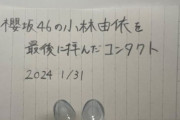 櫻坂46の小林由依を
最後に拝んだコンタクト
2024 1/31